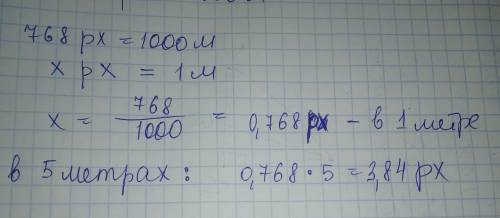 768 px = 1000 м
x px = 1 м
x = 768/1000 = 0,768 px - в 1 метре
в 5 метрах: 0,768 · 5 = 3,84 px